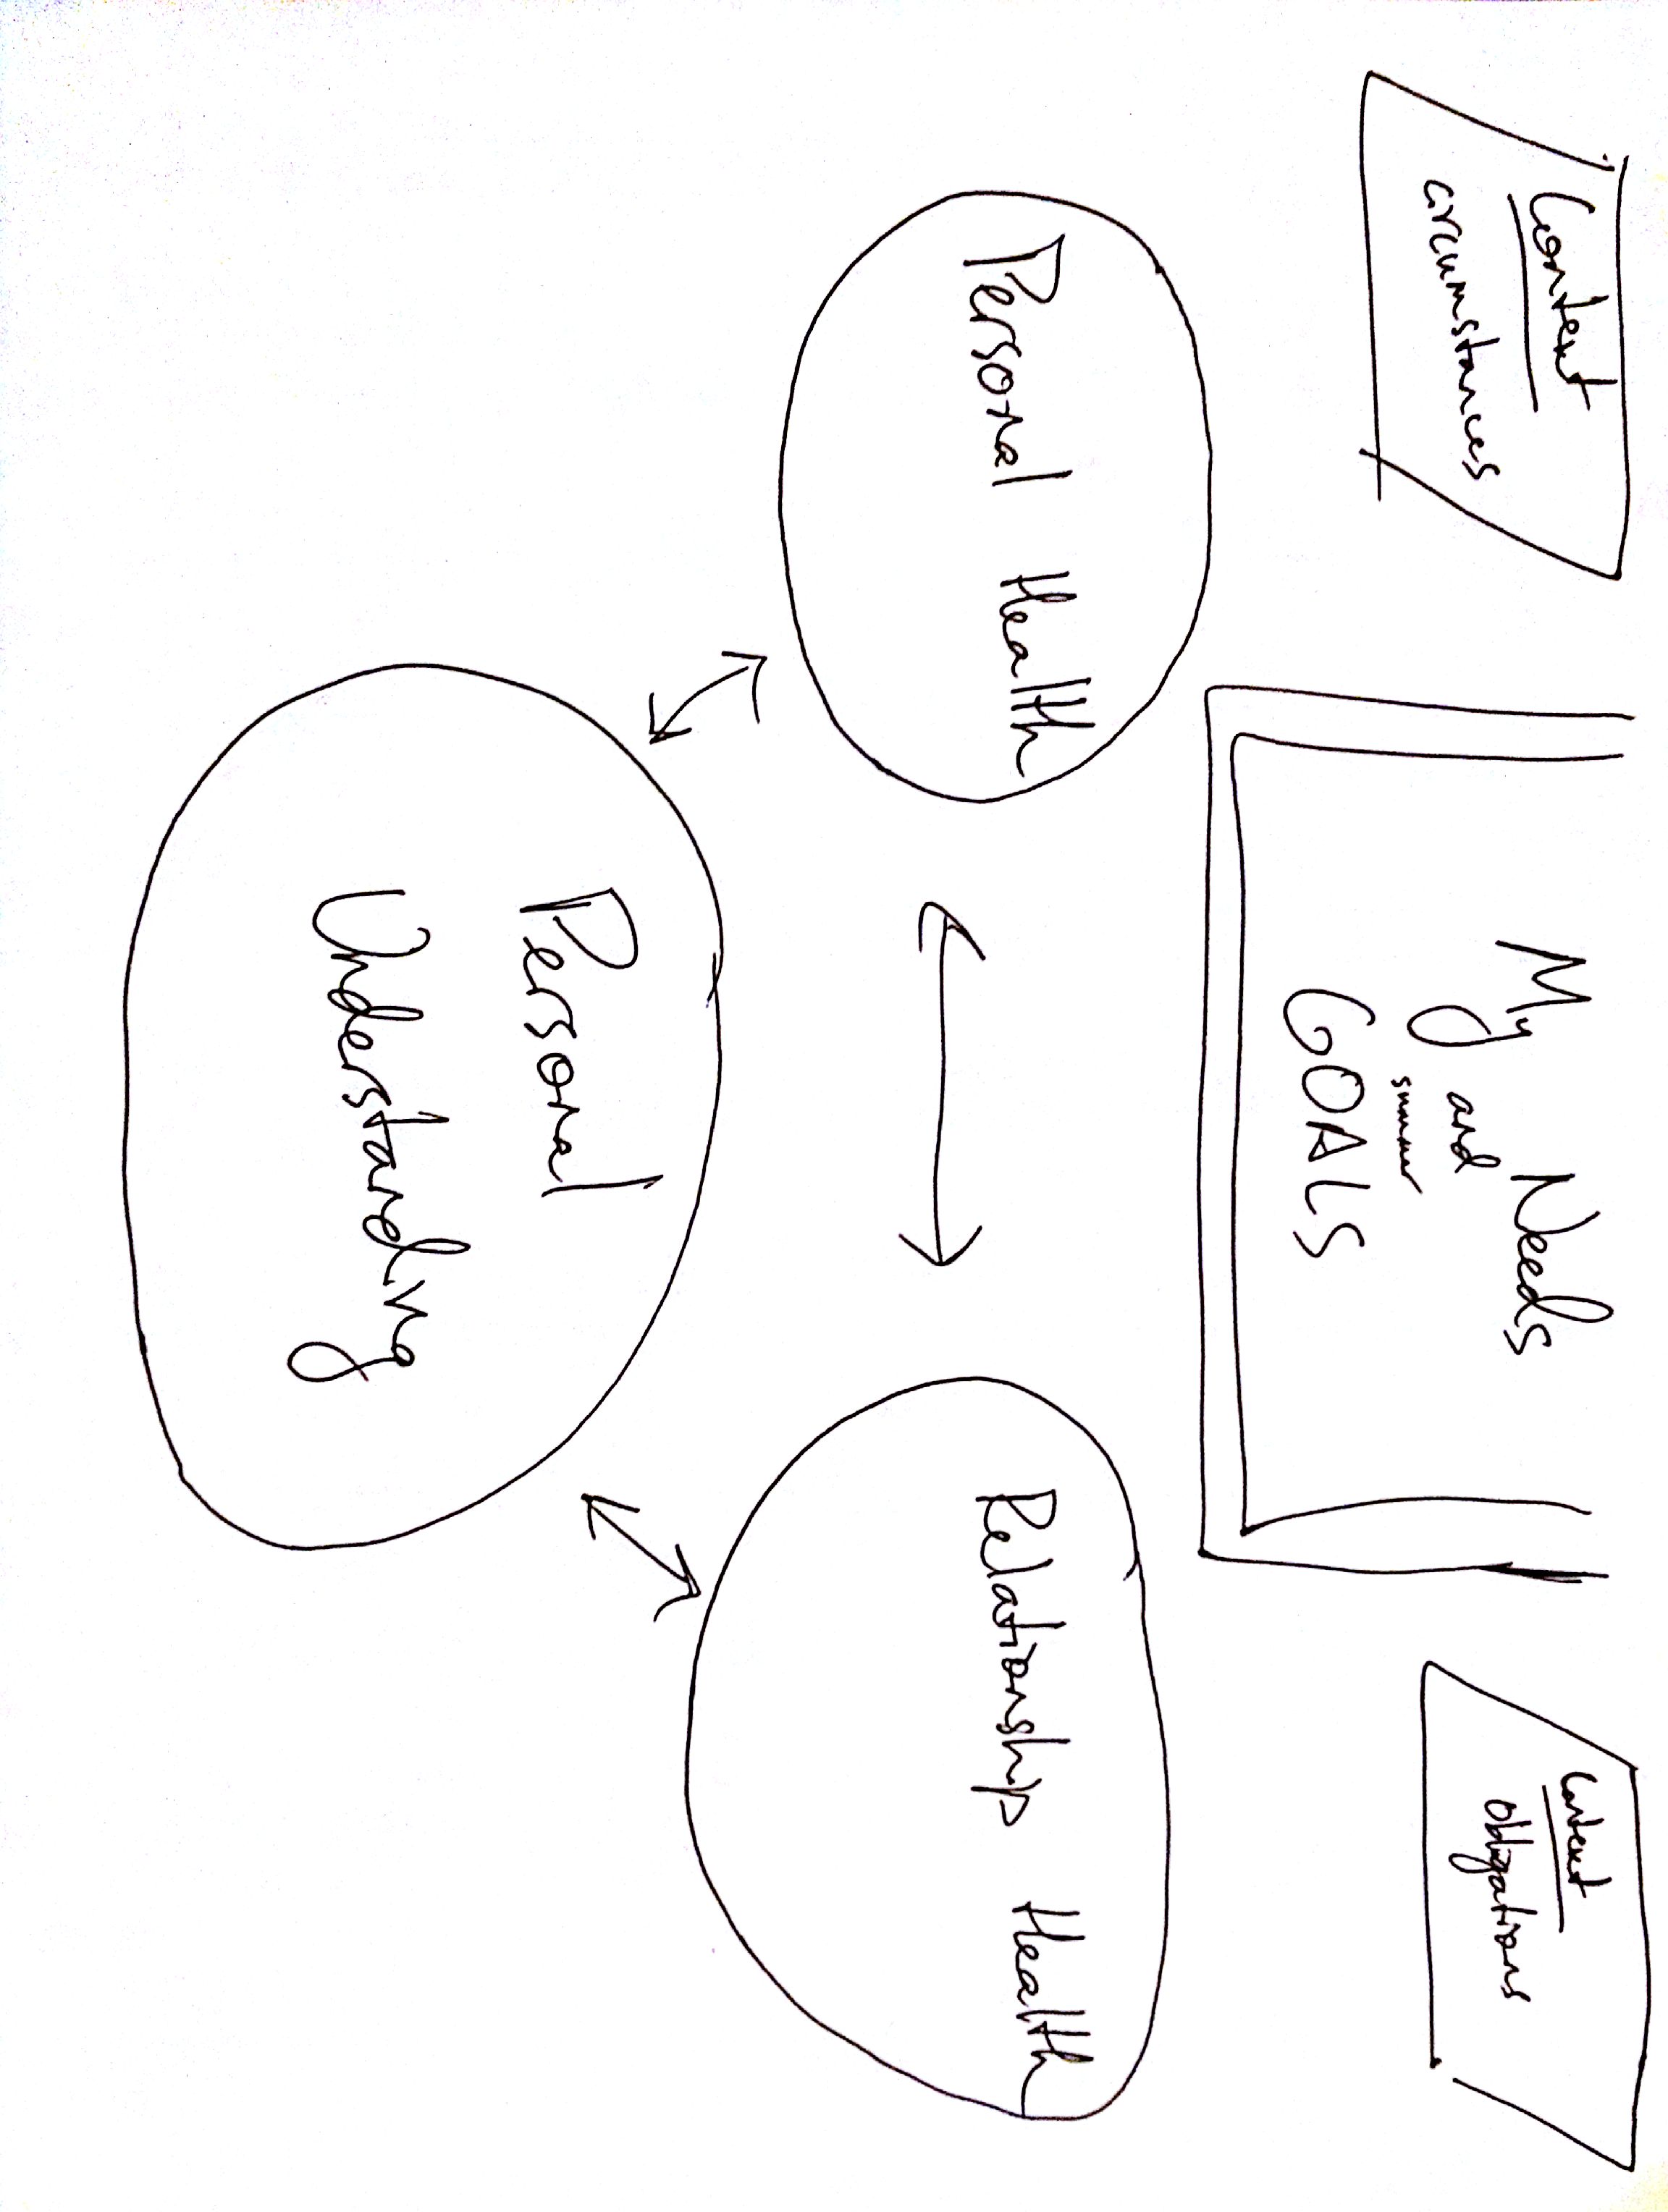 Context
circumstances
My Needs
and
summer
GOALS
Context
Obligations
Personal Health
Relationship Health
Personal
Understanding